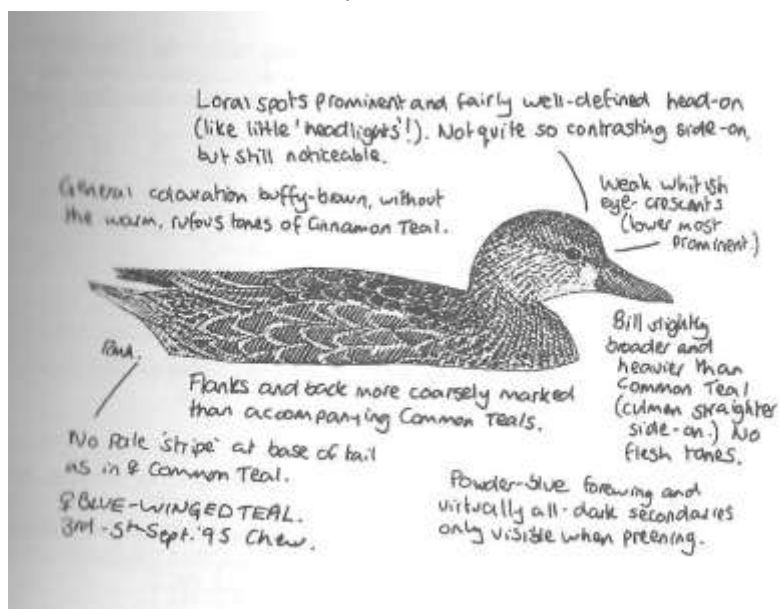 Loral spots prominent and fairly well-defined head-on
(like little 'headlights'!). Not quite so contrasting side-on,
but still noticeable.
General colouration buffy-brown, without
the warm, rufous tones of Cinnamon Teal.
Weak whitish
eye-crescents
(lower most
prominent.)
Bill slightly
broader and
heavier than
Common Teal
(culmen straighter
side-on.) No
flesh tones.
Flanks and back more coarsely marked
than accompanying Common Teals.
No pale 'stripe' at base of tail
as in ♀ Common Teal.
♀ BLUE-WINGED TEAL.
3rd-5th Sept. '95 Chew.
Powder-blue forewing and
virtually all-dark secondaries
only visible when preening.